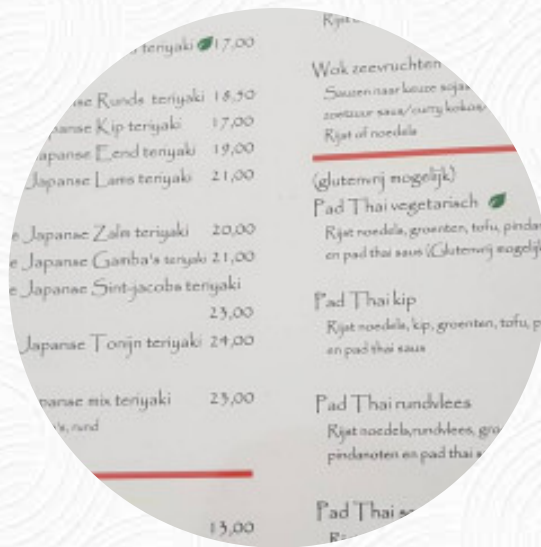 teriyaki 17,00
Runds teriyaki 18,50
Kip teriyaki 17,00
Japanse Eend teriyaki 19,00
Japanse Lams teriyaki 21,00
Japanse Zalm teriyaki 20,00
Japanse Gamba's teriyaki 21,00
Japanse Sint-jacobs teriyaki
23,00
Japanse Tonijn teriyaki 24,00
mix teriyaki 23,00
rund
13,00
Wok zeevruchten
Sauzen naar keuze
zoetzuur saus/curry
Rijst of noedels
(glutenvrij mogelijk)
Pad Thai vegetarisch
Rijst noedels, groenten, tofu,
en pad thai saus (Glutenvrij
Pad Thai kip
Rijst noedels, kip, groenten, tofu,
en pad thai saus
Pad Thai rundvlees
Rijst noedels, rundvlees,
pindanoten en pad thai
Pad Thai